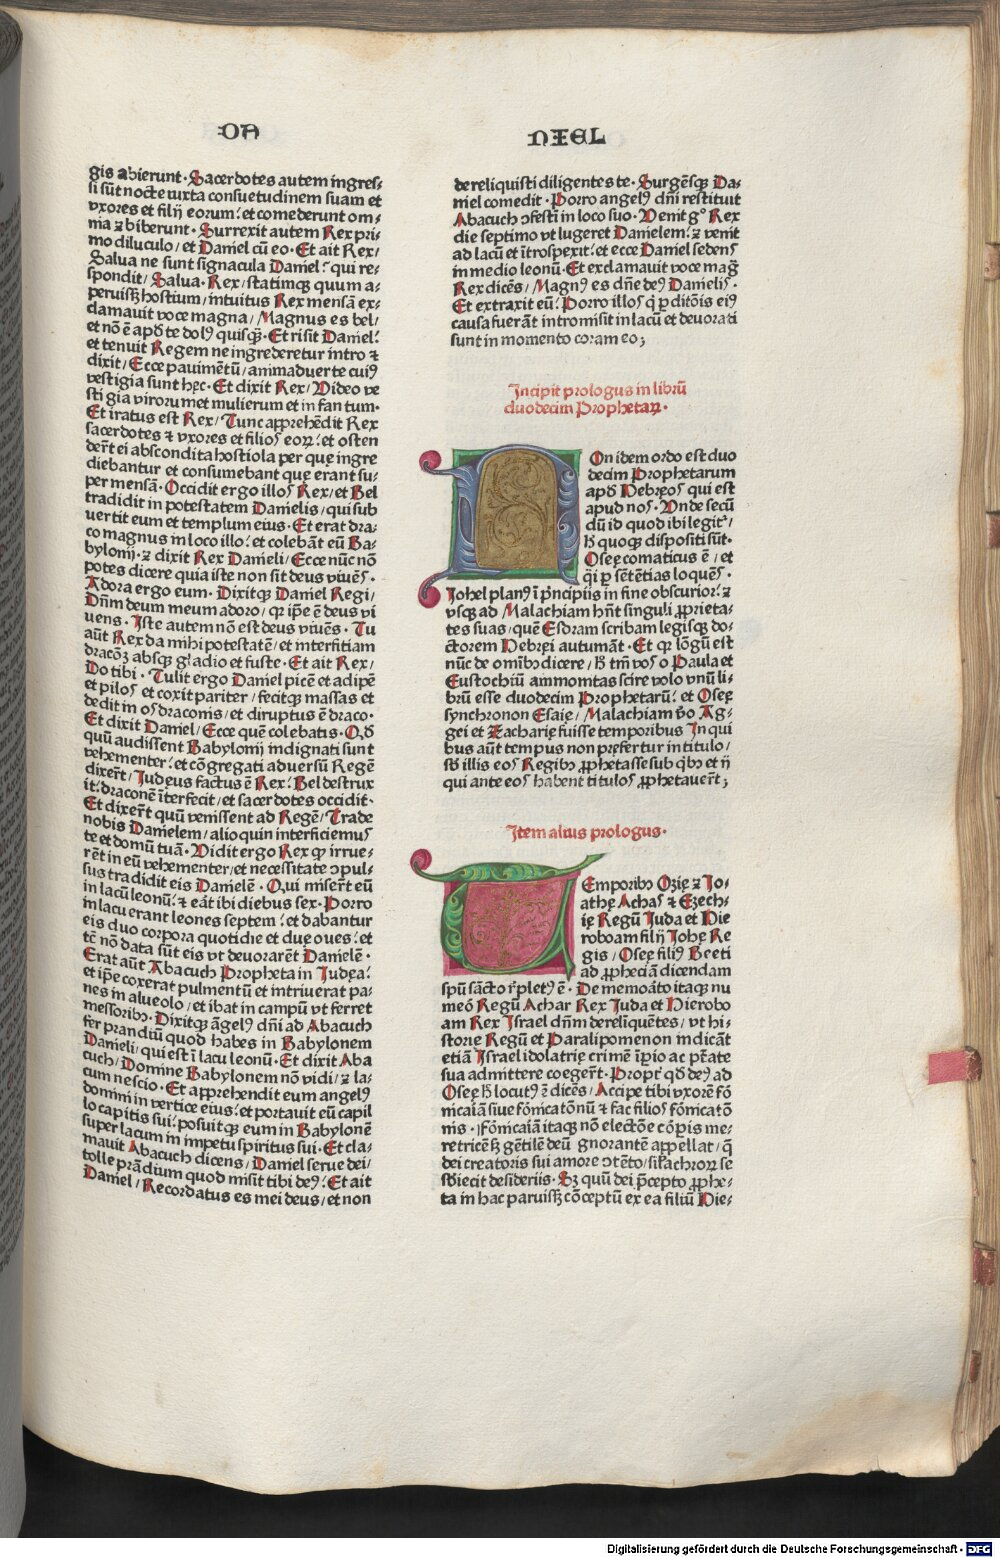 DA
NIEL
gis abierunt· Sacerdotes autem ingreſ⸗
ſi sūt nocte iuxta consuetudinem suam et
vxores et filij eorum: et comederunt om⸗
nia ⁊ biberunt· Surrexit autem Rex pri⸗
mo diluculo/ et Daniel cū eo· Et ait Rex/
Salua ne sunt signacula Daniel? qui re⸗
spondit/ Salua· Rex/ statimqꝫ quum a⸗
peruissꝫ hostium/ intuitus Rex mensā ex⸗
clamauit voce magna/ Magnus es bel/
et nō ē apd̄ te dolꝰ quisqꝫ· Et risit Daniel:
et tenuit Regem ne ingrederetur intro ⁊
dixit/ Ecce pauimētū/ animaduerte cuiꝰ
vestigia sunt hęc· Et dixit Rex/ Video ve
stigia virorum et mulierum et infantum·
Et iratus est Rex/ Tunc apprehēdit Rex
sacerdotes ⁊ vxores et filios eoꝝ: et osten
der̄t ei abscondita hostiola per quę ingre
diebantur et consumebant quę erant su⸗
per mensā· Occidit ergo illos Rex/ et Bel
tradidit in potestatem Danielis/ qui sub
uertit eum et templum eius· Et erat dra⸗
co magnus in loco illo: et colebāt eū Ba⸗
bylonij· ⁊ dixit Rex Danieli/ Ecce nūc nō
potes dicere quia iste non sit deus viuēs·
Adora ergo eum· Dixitqꝫ Daniel Regi/
Dn̄m deum meum adoro/ qꝛ ip̄e ē deus vi
uens· Iste autem nō est deus viuēs· Tu
aūt Rex da mihi potestatē/ et interfitiam
dracōꝫ absqꝫ gladio et fuste· Et ait Rex/
Do tibi· Tulit ergo Daniel picē et adipē
et pilos et coxit pariter/ fecitqꝫ massas et
dedit in os draconis/ et diruptus ē draco·
Et dixit Daniel/ Ecce quē colebatis· Qd̄
quū audissent Babylonij indignati sunt
vehementer: et cōgregati aduersū Regē
dixer̄t/ Judęus factus ē Rex: Bel destrux
it: draconē īterfecit/ et sacerdotes occidit·
Et dixer̄t quū venissent ad Regē/ Trade
nobis Danielem/ alioquin interficiemus
te et domū tuā· Vidit ergo Rex ꝙ irrue⸗
rēt in eū vehementer/ et necessitate ↄpul⸗
sus tradidit eis Danielē· Qui miser̄t eū
in lacū leonū: ⁊ eāt ibi diebus sex· Porro
in lacu erant leones septem: et dabantur
eis duo corpora quotidie et duę oues: et
tc̄ nō data sūt eis vt deuorarēt Danielē·
Erat aūt Abacuch Propheta in Judęa:
et ip̄e coxerat pulmentū et intriuerat pa⸗
nes in alueolo/ et ibat in campū vt ferret
messoribꝰ· Dixitqꝫ āgelꝰ dn̄i ad Abacuch
fer prandiū quod habes in Babylonem
Danieli/ qui est ī lacu leonū· Et dixit Aba
cuch/ Domine Babylonem nō vidi/ ⁊ la⸗
cum nescio· Et apprehendit eum angelꝰ
domini in vertice eius: et portauit eū capil
lo capitis sui: posuitqꝫ eum in Babylonē
super lacum in impetu spiritus sui· Et cla⸗
mauit Abacuch dicens/ Daniel serue dei/
tolle prādium quod misit tibi deꝰ: Et ait
Daniel/ Recordatus es mei deus/ et non
dereliquisti diligentes te· Surgēsqꝫ Da⸗
niel comedit· Porro angelꝰ dn̄i restituit
Abacuch ↄfestī in loco suo· Venit gͦ Rex
die septimo vt lugeret Danielem: ⁊ venit
ad lacū et ītrospexit: et ecce Daniel sedens
in medio leonū· Et exclamauit voce maḡ
Rex dicēs/ Magnꝰ es dn̄e deꝰ Danielis·
Et extraxit eū: Porro illos q̄ ꝑditōis eiꝰ
causa fuerāt intromisit in lacū et deuorati
sunt in momento coram eo;
Incipit prologus in librū
duodecim Prophetaꝝ·
NOn idem ordo est duo
decim Prophetarum
apd̄ Hebręos qui est
apud nos· Vnde secū
dū id quod ibi legit̄/
hꝭ quoqꝫ dispositi sūt·
Osee comaticus ē/ et
q̄i ꝑ sētētias loquēs·
Johel planꝰ ī principiis in fine obscurior: ⁊
vsqꝫ ad Malachiam hn̄t singuli ꝓprieta⸗
tes suas/ quē Esdram scribam legisqꝫ do⸗
ctorem Hebręi autumāt· Et qꝛ lōgū est
nūc de omībꝰ dicere/ hꝭ tm̄ vos o Paula et
Eustochiū ammonitas scire volo vnū li⸗
brū esse duodecim Prophetarū: et Osee
synchronon Esaię/ Malachiam vͦo Ag⸗
gei et Zacharię fuisse temporibus In qui
bus aūt tempus non pręfertur in titulo/
sb̄ illis eos Regibꝰ ꝓphetasse sub qͥbꝰ et ij
qui ante eos habent titulos ꝓphetauer̄t;
Item alius prologus·
TEmporibꝰ Ozię ⁊ Jo⸗
athę Achas ⁊ Ezech⸗
ię Regū Juda et Hie
roboam filij Johę Re
gis/ Osee filiꝰ Beeti
ad ꝓpheciā dicendam
spū sācto r̄pletꝰ ē· De memoāto itaqꝫ nu
meō Regū Achar Rex Juda et Hierobo
am Rex Israel dn̄m dereliquētes/ vt hi⸗
storię Regū et Paralipomenon indicāt
etiā Israel idolatrię crimē īpio ac p̄tate
sua admittere coeger̄t· Proptͥ qd̄ deꝰ ad
Osee hꝭ locutꝰ ē dicēs/ Accipe tibi vxorē fō
nicaiā siue fōnicatōnū ⁊ fac filios fōnicatō
nis· Fōnicaiā itaqꝫ nō electōe cōꝑis me⸗
retricēꝫ gētilē deū gnorantē appellat/ q̄
dei creatoris sui amore ↄtēto/ sil̄achroꝝ se
sb̄iecit desideriis· Sꝫ quū dei p̄cepto ꝓphe⸗
ta in hac paruissꝫ cōceptū ex ea filiū Hie⸗
Digitalisierung gefördert durch die Deutsche Forschungsgemeinschaft · DFG